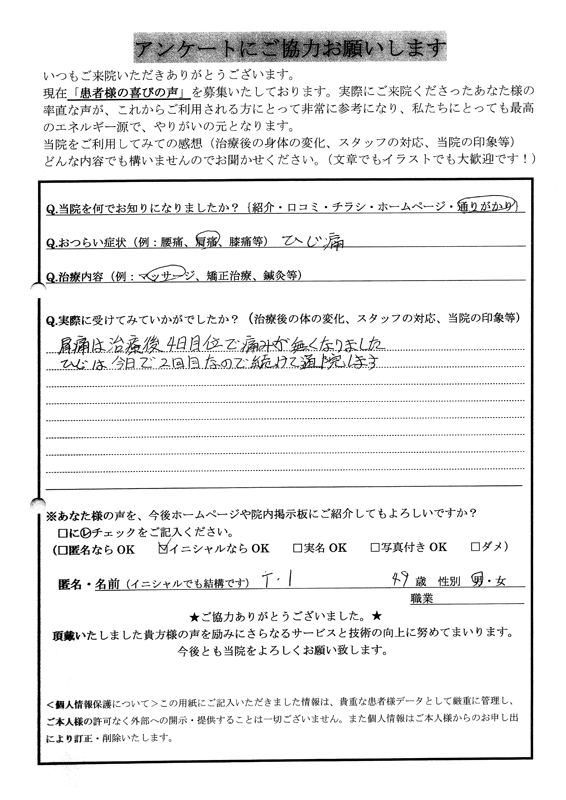 アンケートにご協力お願いします
いつもご来院いただきありがとうございます。
現在「患者様の喜びの声」を募集いたしております。実際にご来院くださったあなた様の
率直な声が、これからご利用される方にとって非常に参考になり、私たちにとっても最高
のエネルギー源で、やりがいの元となります。
当院をご利用してみての感想（治療後の身体の変化、スタッフの対応、当院の印象等）
どんな内容でも構いませんのでお聞かせください。（文章でもイラストでも大歓迎です！）
Q.当院を何でお知りになりましたか？（紹介・口コミ・チラシ・ホームページ・通りがかり）
Q.おつらい症状（例：腰痛、肩痛、膝痛等） ひじ痛
Q.治療内容（例：マッサージ、矯正治療、鍼灸等）
Q.実際に受けてみていかがでしたか？（治療後の体の変化、スタッフの対応、当院の印象等）
肩痛は治療後、4日目位で痛みが無くなりました
ひじは今日で2回目なので続けて通院します
※あなた様の声を、今後ホームページや院内掲示板にご紹介してもよろしいですか？
□に✓チェックをご記入ください。
（□匿名ならOK ☑イニシャルならOK □実名OK □写真付きOK □ダメ）
匿名・名前（イニシャルでも結構です） T・I 49歳 性別 男・女
職業
★ご協力ありがとうございました。★
頂戴いたしました貴方様の声を励みにさらなるサービスと技術の向上に努めてまいります。
今後とも当院をよろしくお願い致します。
＜個人情報保護について＞この用紙にご記入いただきました情報は、貴重な患者様データとして厳重に管理し、
ご本人様の許可なく外部への開示・提供することは一切ございません。また個人情報はご本人様からのお申し出
により訂正・削除いたします。